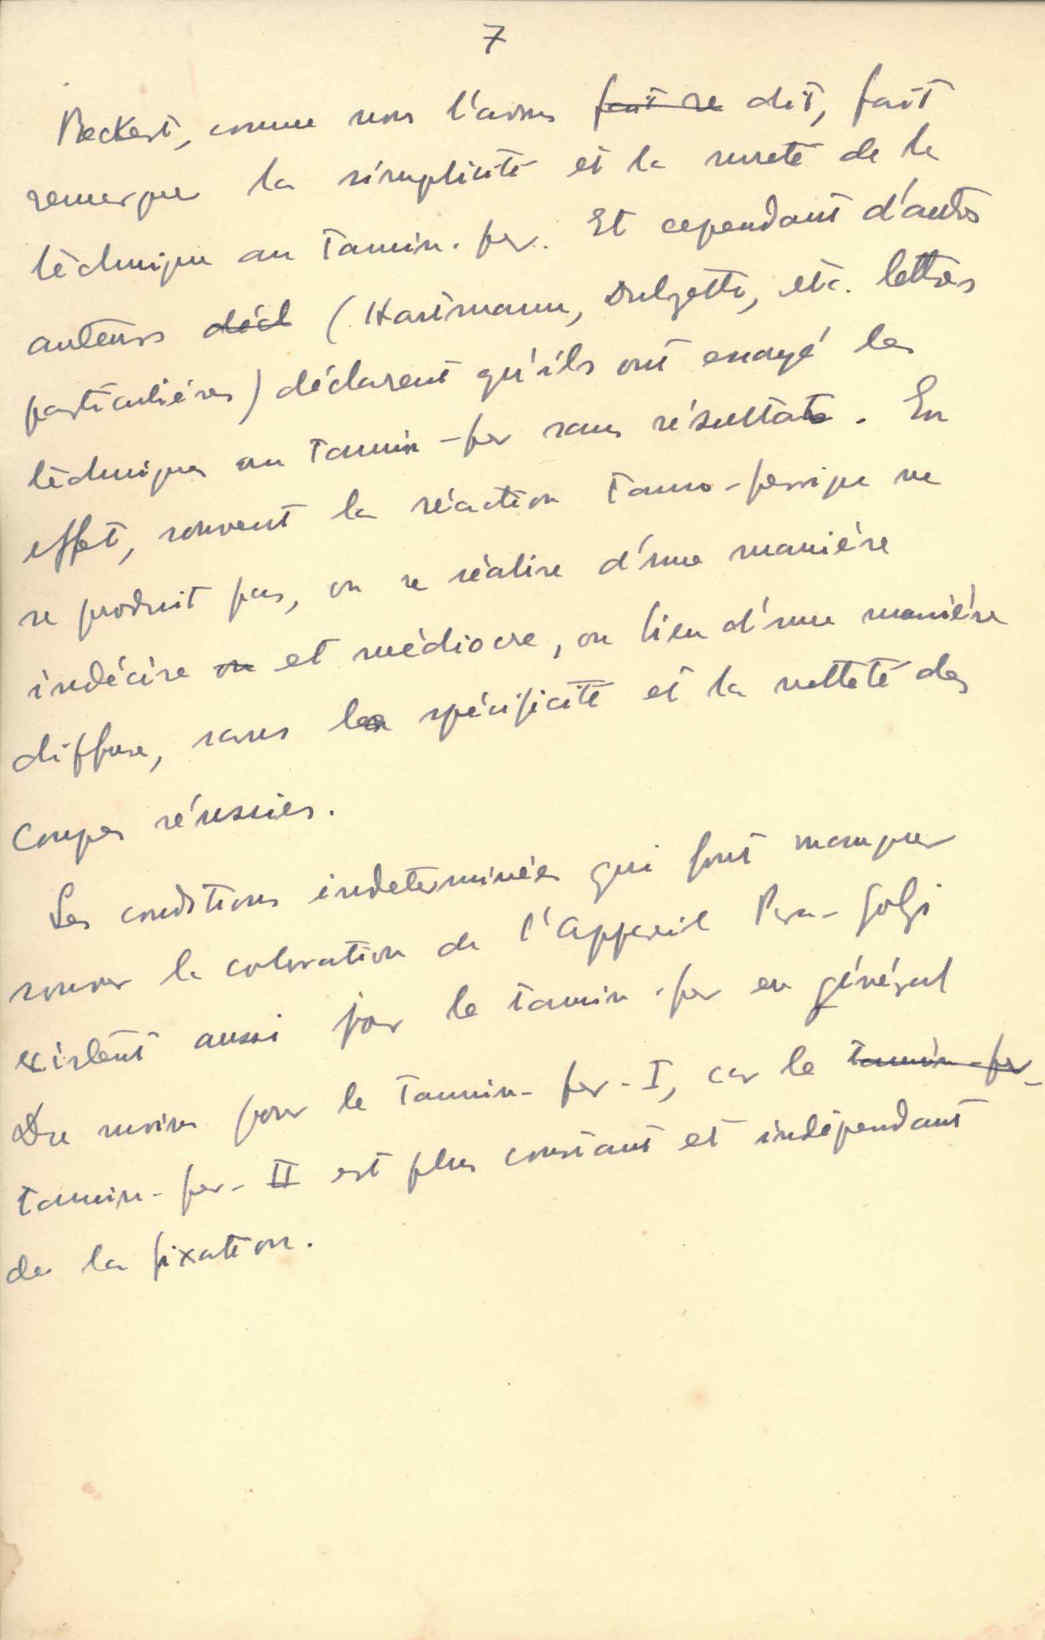 7
Beckert, comme nous l'avons fait re dit, fait
remarquer la simplicité et la sureté de la
téchnique au Tannin-fer. Et cependant d'autres
auteurs décl (Hartmann, Dulzetto, etc. lettres
particuliéres) déclarent qu'ils ont essayé les
téchniques au Tannin-fer sans résultats. En
effet, souvent la réaction Tanno-ferrique ne
se produit pas, ou se réalise d'une maniére
indécise ou et médiocre, ou bien d'une maniére
diffuse, sans la spécificité et la netteté des
coupes réussies.
Les conditions indeterminées qui font manquer
souvent la coloration de l'appareil Para-Golgi
existent aussi pour le tannin-fer en général
Du moins pour le Tannin-fer-I, car le tannin-fer-
tannin-fer-II est plus constant et indépendant
de la fixation.